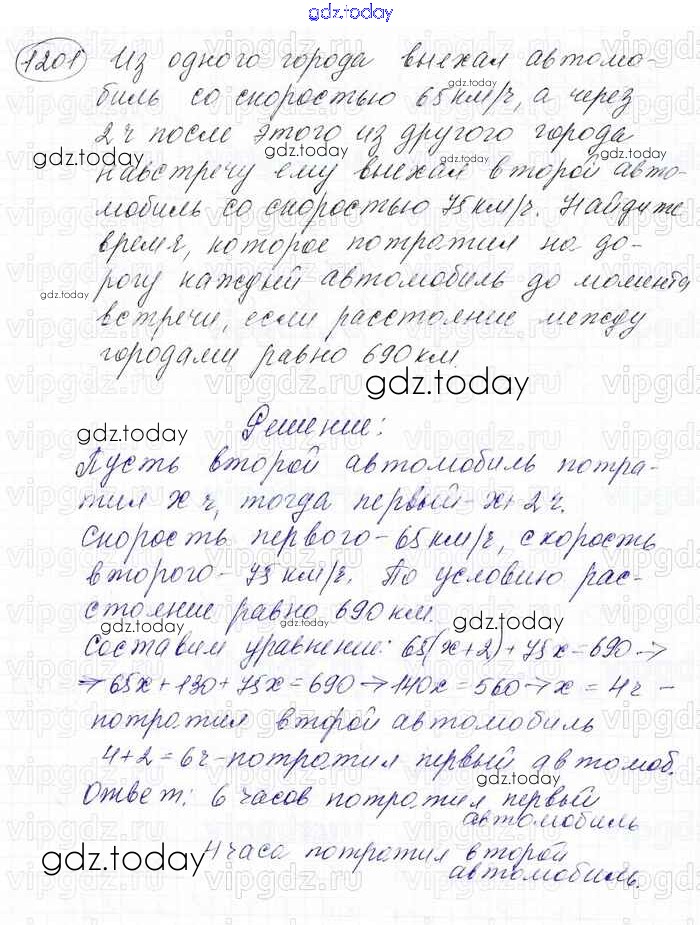 gdz.today
1201 Из одного города выехал автомо-
gdz.today
биль со скоростью 65 км/ч, а через
2 ч после этого из другого города
gdz.today gdz.today gdz.today
навстречу ему выехал второй авто-
мобиль со скоростью 75 км/ч. Найдите
время, которое потратил на до-
рогу каждый автомобиль до момента
gdz.today gdz.today
встречи, если расстояние между
городами равно 690 км.
gdz.today
Решение:
gdz.today
Пусть второй автомобиль потра-
тил x ч, тогда первый - x+2 ч.
gdz.today
Скорость первого - 65 км/ч, скорость
второго - 75 км/ч. По условию рас-
стояние равно 690 км.
gdz.today gdz.today
Составим уравнение: 65(x+2)+75x=690 →
→ 65x+130+75x=690 → 140x=560 → x=4ч -
потратил второй автомобиль
4+2=6ч - потратил первый автомоб.
gdz.today
Ответ: 6 часов потратил первый
автомобиль
gdz.today
4 часа потратил второй
gdz.today
автомобиль.